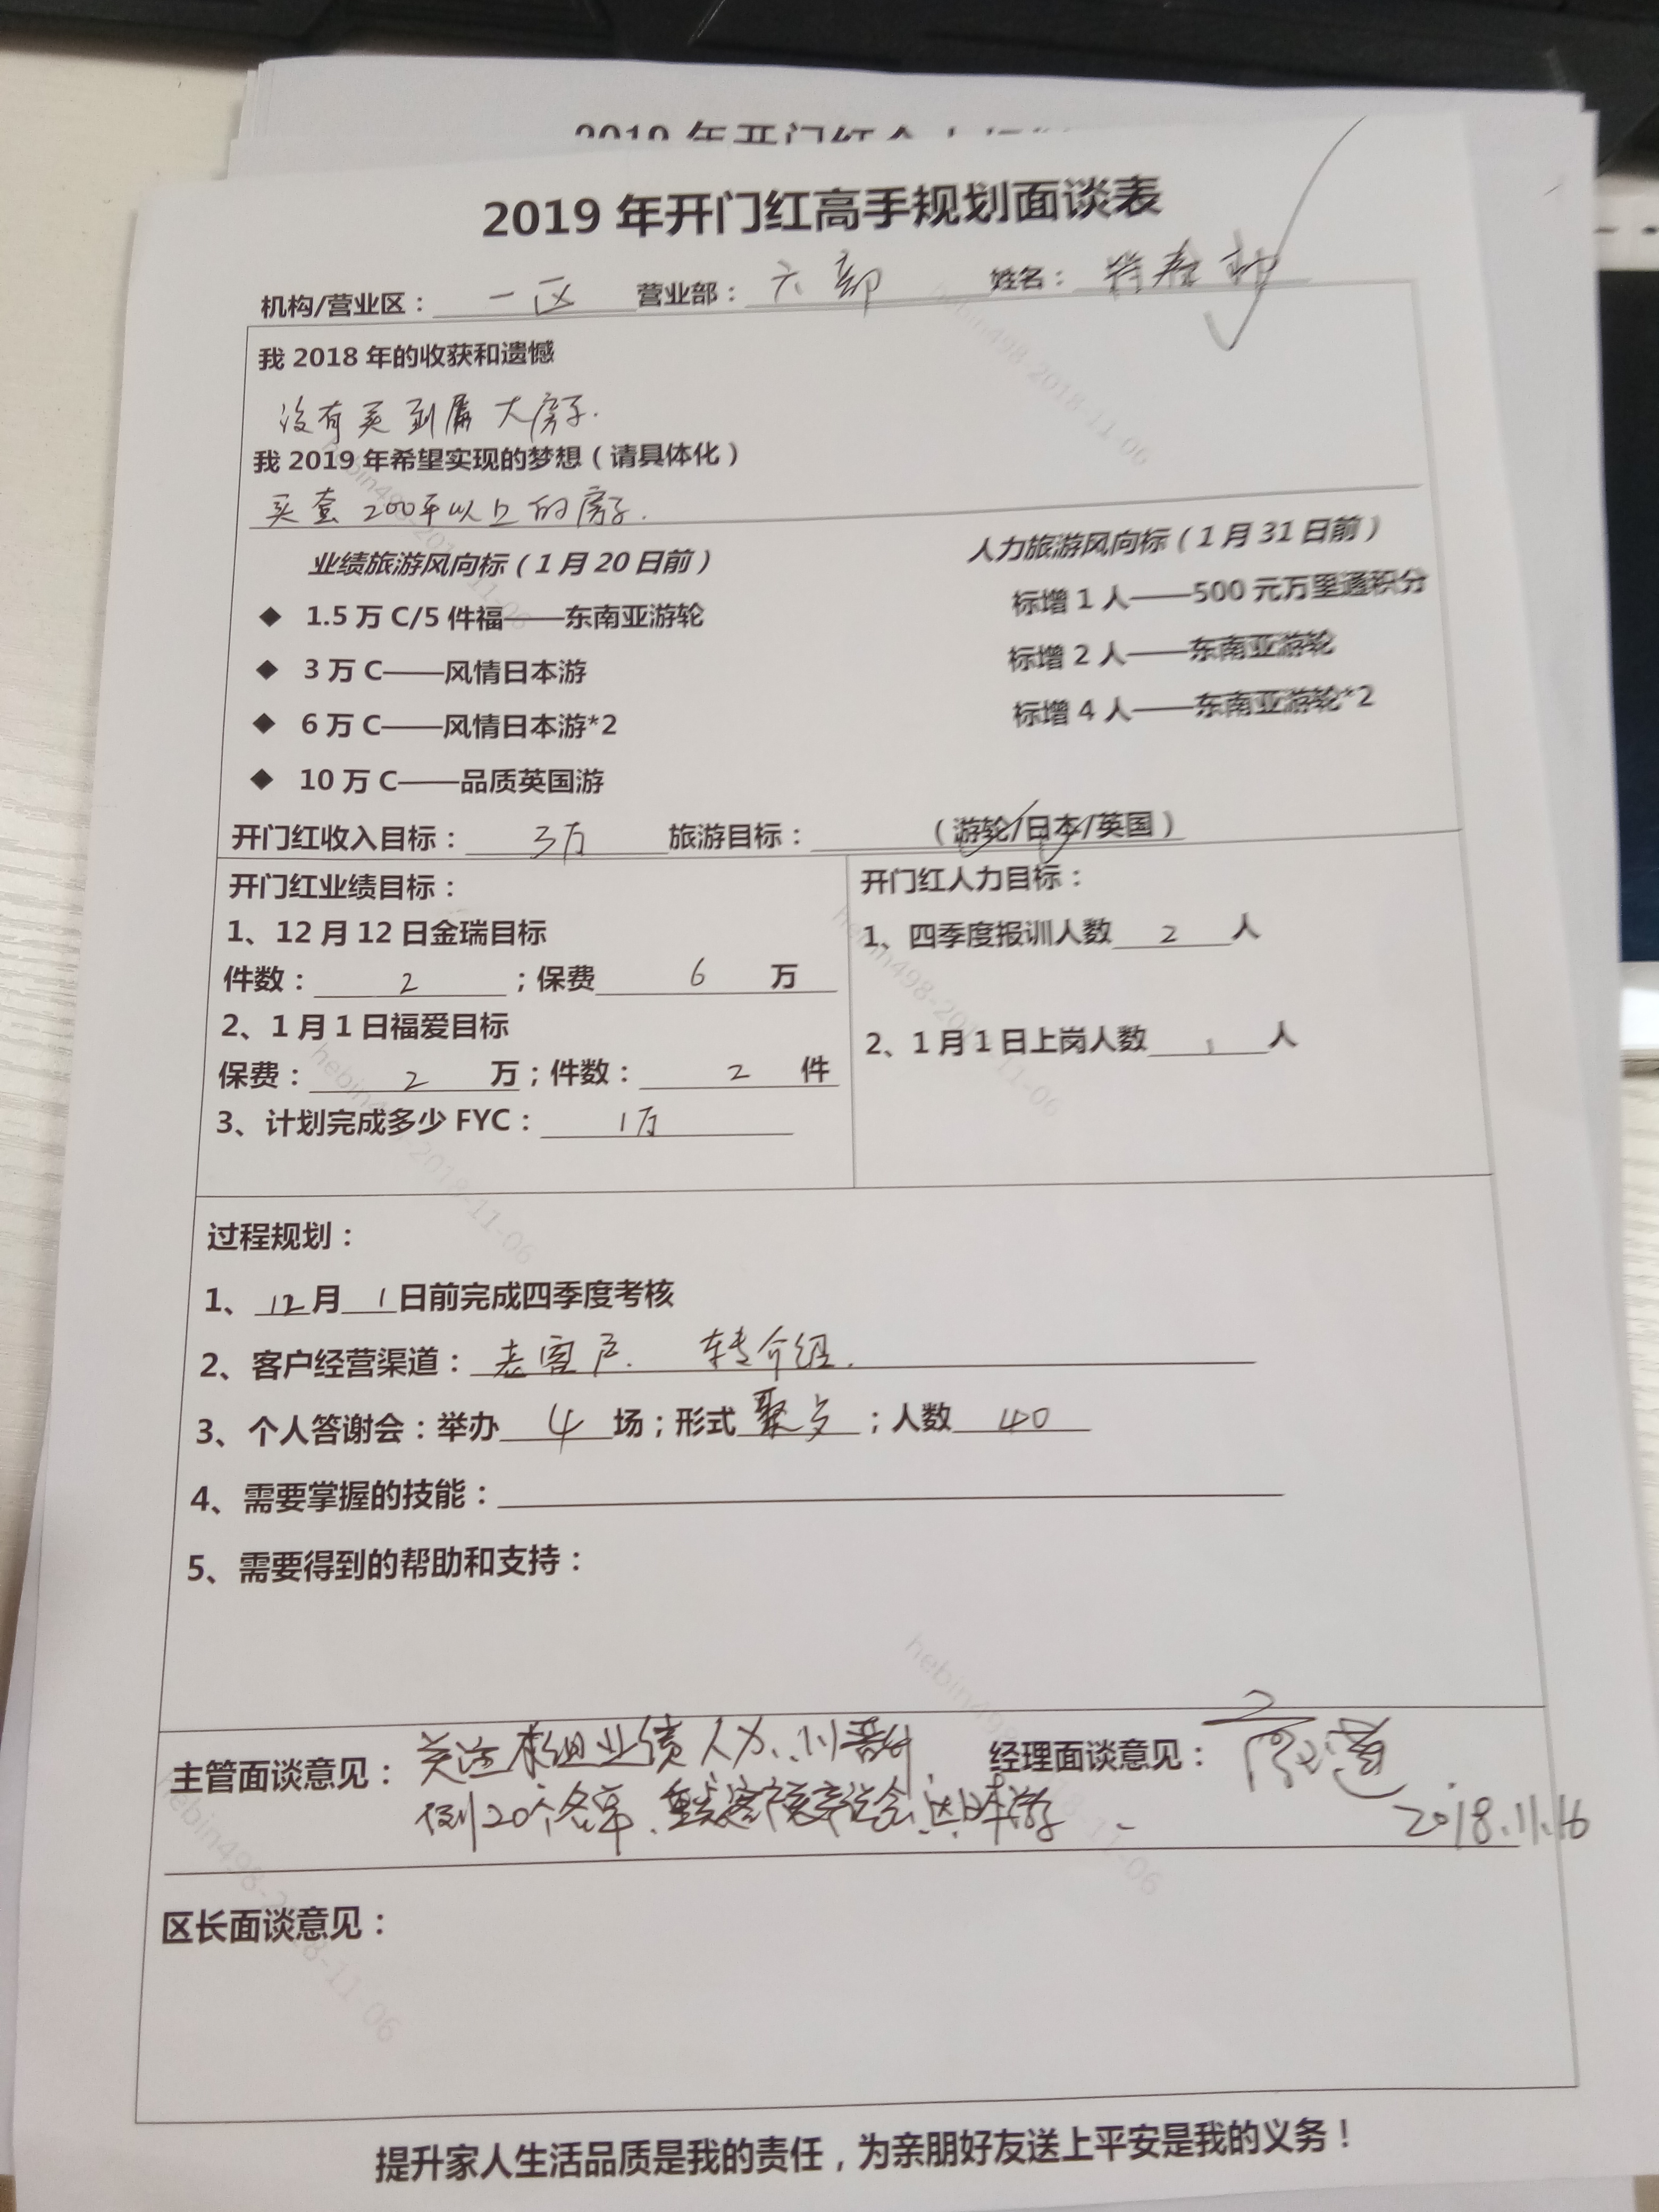 2019 年开门红高手规划面谈表
机构/营业区： 一区 营业部： 六部 姓名：
我 2018 年的收获和遗憾
没有买到属大房子.
我 2019 年希望实现的梦想（请具体化）
买套 200平以上的房子.
业绩旅游风向标（1 月 20 日前） 人力旅游风向标（1 月 31 日前）
◆ 1.5 万 C/5 件福——东南亚游轮 标增 1 人——500 元万里通积分
◆ 3 万 C——风情日本游 标增 2 人——东南亚游轮
◆ 6 万 C——风情日本游*2 标增 4 人——东南亚游轮*2
◆ 10 万 C——品质英国游
开门红收入目标： 3万 旅游目标： （游轮/日本/英国）
开门红业绩目标： 开门红人力目标：
1、12 月 12 日金瑞目标 1、四季度报训人数 2 人
件数： 2 ；保费 6 万
2、1 月 1 日福爱目标 2、1 月 1 日上岗人数 1 人
保费： 2 万；件数： 2 件
3、计划完成多少 FYC： 1万
过程规划：
1、 12 月 1 日前完成四季度考核
2、客户经营渠道： 老客户. 转介绍.
3、个人答谢会：举办 4 场；形式 聚 ；人数 40
4、需要掌握的技能：
5、需要得到的帮助和支持：
主管面谈意见： 关注本组业绩人力 经理面谈意见：
20个名单 2018.11.16
区长面谈意见：
提升家人生活品质是我的责任，为亲朋好友送上平安是我的义务！